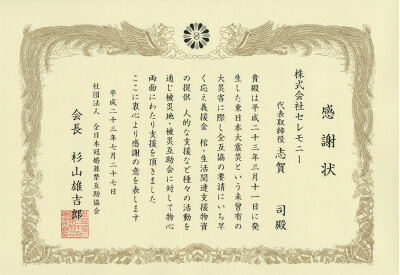 感謝状
株式会社セレモニー
代表取締役 志賀 司殿
貴殿は平成二十三年三月十一日に発
生した東日本大震災という未曾有の
大災害に際し全互協の要請にいち早
く応え義援金 棺・生活関連支援物資
の提供 人的な支援など種々の活動を
通じ被災地・被災互助会に対して物心
両面にわたり支援を頂きました
ここに衷心より感謝の意を表します
平成二十三年七月二十七日
社団法人 全日本冠婚葬祭互助協会
会長 杉山雄吉郎